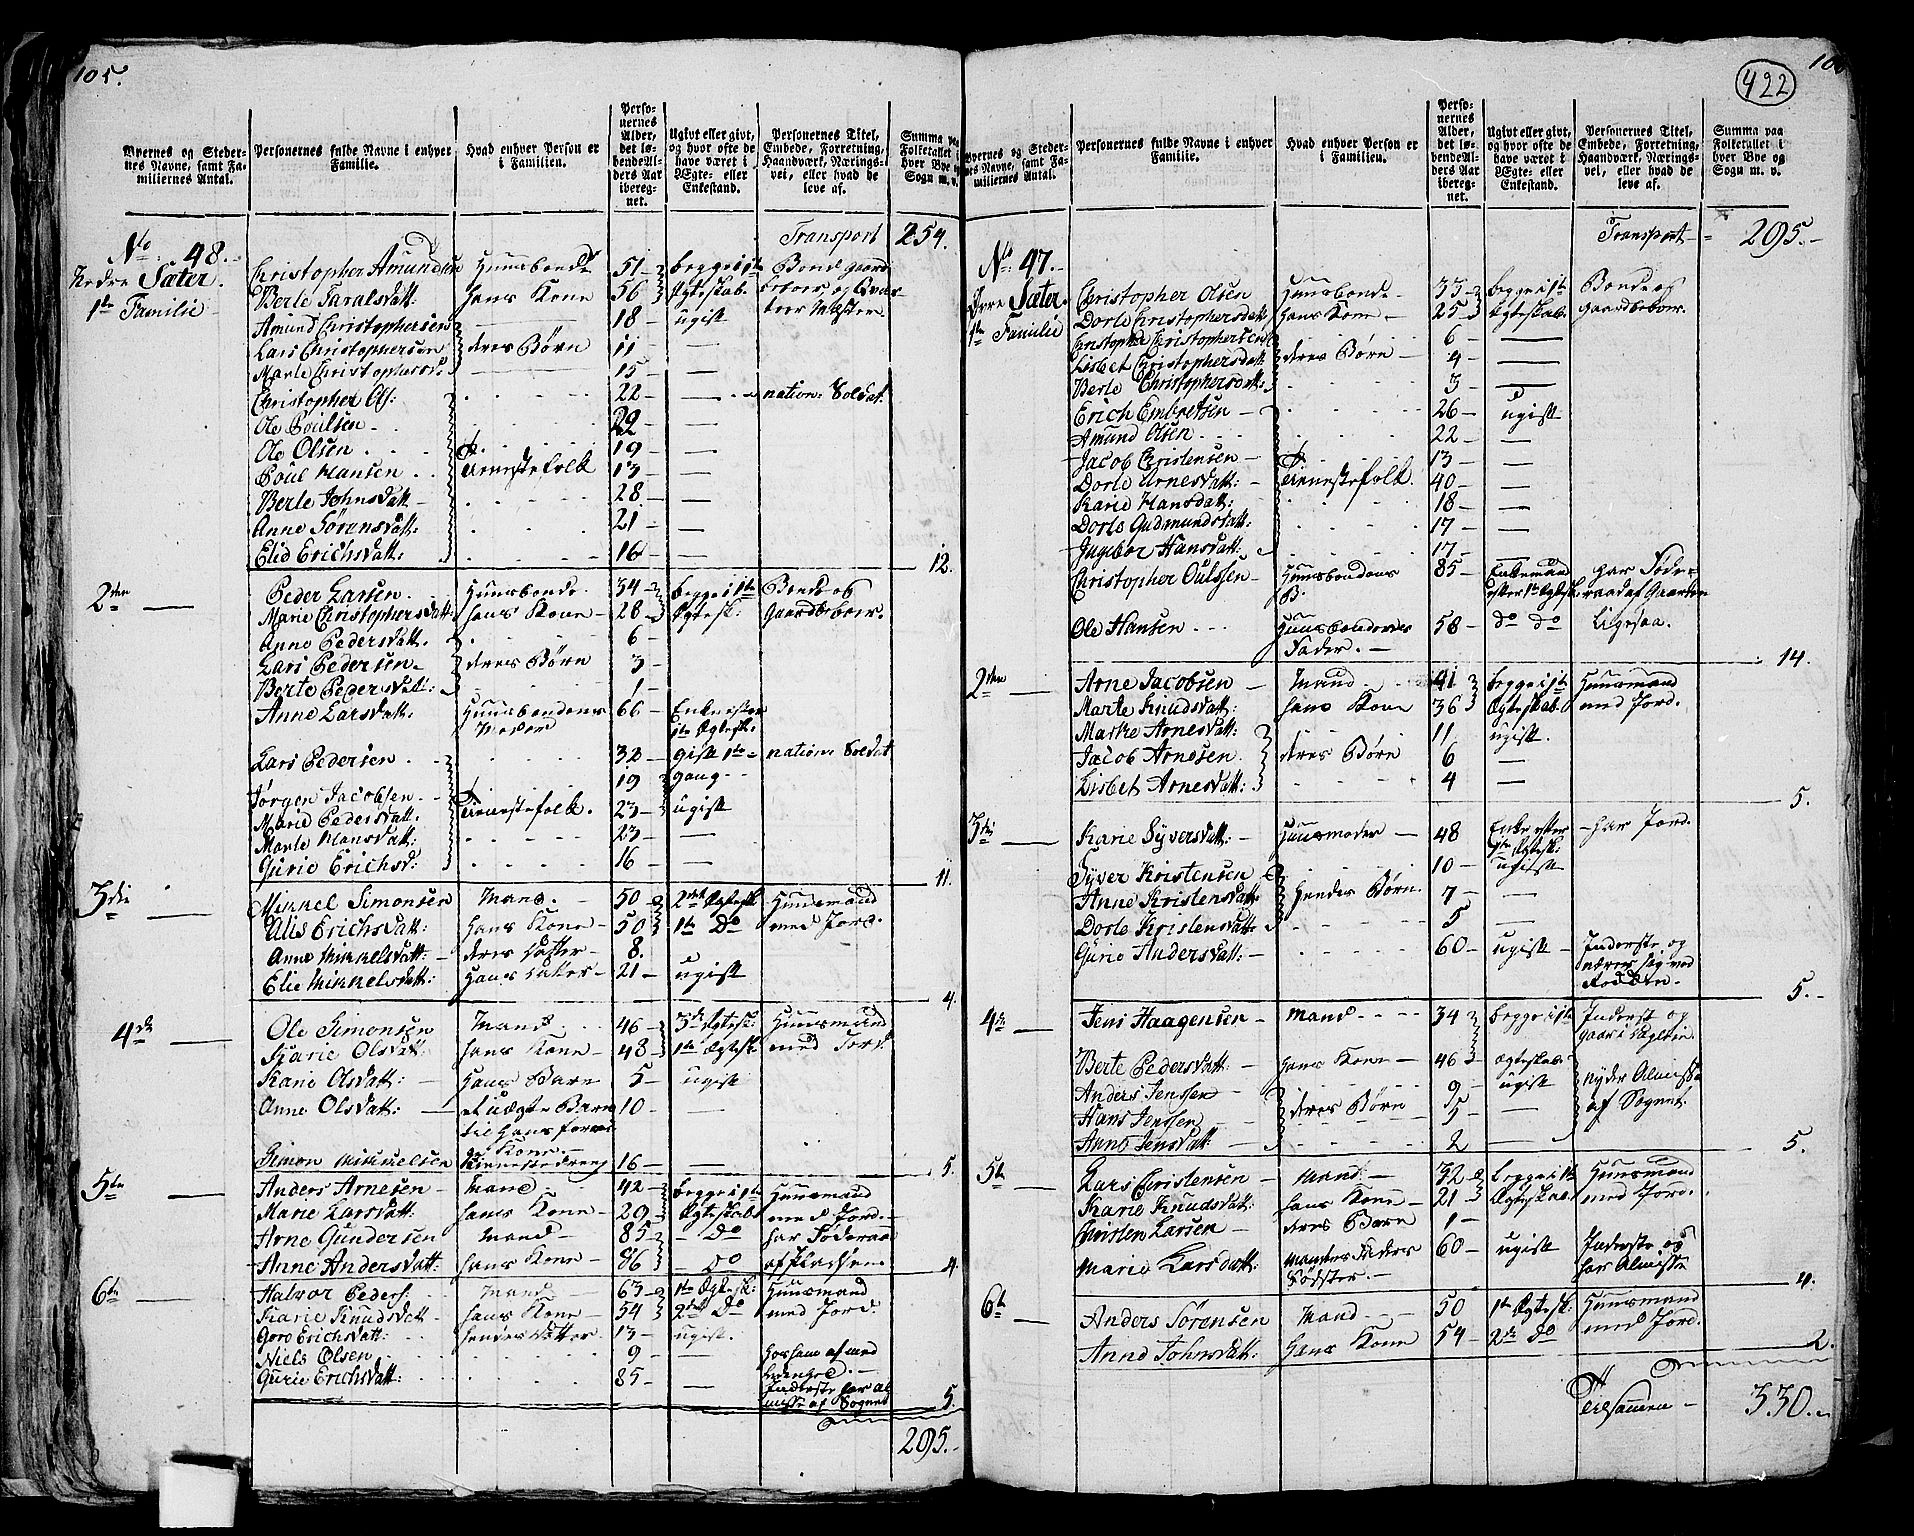 105.
Byernes og Steder-
nes Navne, samt Fa-
miliernes Antal.
Personernes fulde Navne i enhver
Familie.
Hvad enhver Person er
i Familien.
Perso-
nernes
Alder,
det lø-
bende Al-
ders Aar
iberegnet.
Ugivt eller givt,
og hvor ofte de
have været i
Ægte- eller
Enkestand.
Personernes Titel,
Embede, Forretning,
Haandværk, Nærings-
vei, eller hvad de
leve af.
Summa paa
Folketallet i
hver Bye og
Sogn m. v.
Transport 254.
No. 48.
Nedre Sæter.
1te Familie
Christopher Amundsen Huusbonde 51 begge i 1te Bond gaard
Berte Taralsdatt: hans Kone 56 Ægteskab. beboer og
Amund Christophersen 18 ugift
Lars Christophersen deres Børn 11 —
Marte Christophersd: 15 —
Christopher Ols: 22 — nation: Soldat.
Ole Poulsen 22 —
Ole Olsen 19 —
Poul Hansen Tienestefolk 13 —
Berte Johnsdatt 28 —
Anne Sørensdatt: 21 —
Elid Erichsdatt: 16 —
12.
2den
Peder Larsen Huusbonde 34 begge i 1te Bonde og
Marie Christophersdatt: hans Kone 28 Ægtesk: gaardbeboer.
Anne Pedersdatt. 6
Lars Pedersen deres Børn 3
Berte Pedersdatt: 1
Anne Larsdatt: Huusbondens 66 Enke efter
Moder 1te Ægtesk:
Lars Pedersen 32 gift 1te nation: Soldat
Jørgen Jacobsen 19 gang
Marie Pedersdatt. Tienestefolk. 23 ugift
Marte Hansdatt: 23 —
Gurie Erichsd: 16 —
11.
3die
Mikkel Simonsen Mand. 50 2det Ægtesk Huusmand
Alis Erichsdatt: hans Kone 50 1te Do med Jord.
Anne Mikkelsdatt: deres datter 8.
Elie Mikkelsdatt: Hans datter 21 ugift
4.
4de
Ole Simonsen Mand 46 3de Ægtesk: Huusmand
Karie Olsdatt: hans Kone 48 1te Ægtesk: med Jord
Karie Olsdatt: Hans Barn 5 ugift
Anne Olsdatt: et uægte Barn 10 —
til hans forri
ge Kone
Simon Mikkelsen Tienestedreng 16 —
5.
5te
Anders Arnesen Mand 42 begge i 1te Huusmand
Marie Larsdatt: hans Kone 29 Ægteskab med Jord.
Arne Gundersen Mand 85 Do har Föderaad
Anne Andersdatt: hans Kone 86 Do af Pladsen
4.
6te
Halvor Peders: Mand 63 1te Ægtesk: Huusmand
Karie Knudsdatt hans Kone 54 2det Do med Jord.
Goro Erichsdatt: hendes datter 13 ugift.
Niels Olsen 9 —
Gurie Erichsdatt: 85 —
Inderste har al
misse af Sognet
5.
295.
422
Byernes og Steder-
nes Navne, samt Fa-
miliernes Antal.
Personernes fulde Navne i enhver
Familie.
Hvad enhver Person er
i Familien.
Perso-
nernes
Alder,
det lø-
bende Al-
ders Aar
iberegnet.
Ugivt eller givt,
og hvor ofte de
have været i
Ægte- eller
Enkestand.
Personernes Titel,
Embede, Forretning,
Haandværk, Nærings-
vei, eller hvad de
leve af.
Summa paa
Folketallet i
hver Bye og
Sogn m. v.
Transport 295.
No. 47.
Øvre Sæter.
1te Familie
Christopher Olsen Huusbonde 33 begge i 1te Bonde og
Dorte Christophersdatt hans Kone 25 Ægteskab. gaardbeboer.
Christopher Christophersen 6 —
Lisbet Christophersdatt: deres Børn 4 —
Berte Christophersdatt: 3 —
Erich Embretsen 26 ugift
Amund Olsen 22 —
Jacob Christensen 13 —
Dorte Arnesdatt: Tienestefolk. 40 —
Karie Hansdatt: 18 —
Dorte Gudmundsdatt: 17 —
Ingebor Hansdatt: 17 —
Christopher Oulssen Huusbondens 85 Enkemand har Föde-
B. efter 1te Ægtesk. raad af Gaarden
Ole Hansen Huusbondens 58 do do Ligesaa.
Fader.
14.
2den
Arne Jacobsen Mand 41 begge i 1te Huusmand
Marte Knudsdatt: hans Kone 36 Ægteskab. med Jord.
Marthe Arnesdatt: 11 ugift.
Jacob Arnesen deres Børn 6 —
Lisbet Arnesdatt: 4 —
5.
3die
Karie Syversdatt: Huusmoder 48 Enke efter har Jord.
1te Ægtesk:
Syver Kristensen 10 ugift
Anne Kristensdatt: Hendes Børn. 7 —
Dorte Kristensdatt: 5 —
Gurie Andersdatt: 60 ugift Inderste og
nærer sig med
5.
4de
Jens Haagensen Mand 34 begge i 1te Inderst og
Berte Pedersdatt: hans Kone 46 Ægteskab:
Anders Jenssen 9 ugift nyder Almisse
Hans Jenssen deres Børn 5 — af Sognet.
Anne Jensdatt: 2 —
5.
5te
Lars Christensen Mand 32 begge i 1te Huusmand
Karie Knudsdatt: hans Kone 21 Ægteskab. med Jord.
Christen Larsen deres Barn 1
Marie Larsdatt: Mandens Faders 60 ugift Inderste og
Södster. har Almisse
4.
6te
Anders Sørensen Mand 50 1te Ægtesk: Huusmand
Anne Johnsdatt: Hans Kone 54 2de Do med Jord.
2.
Tilsammen 330.